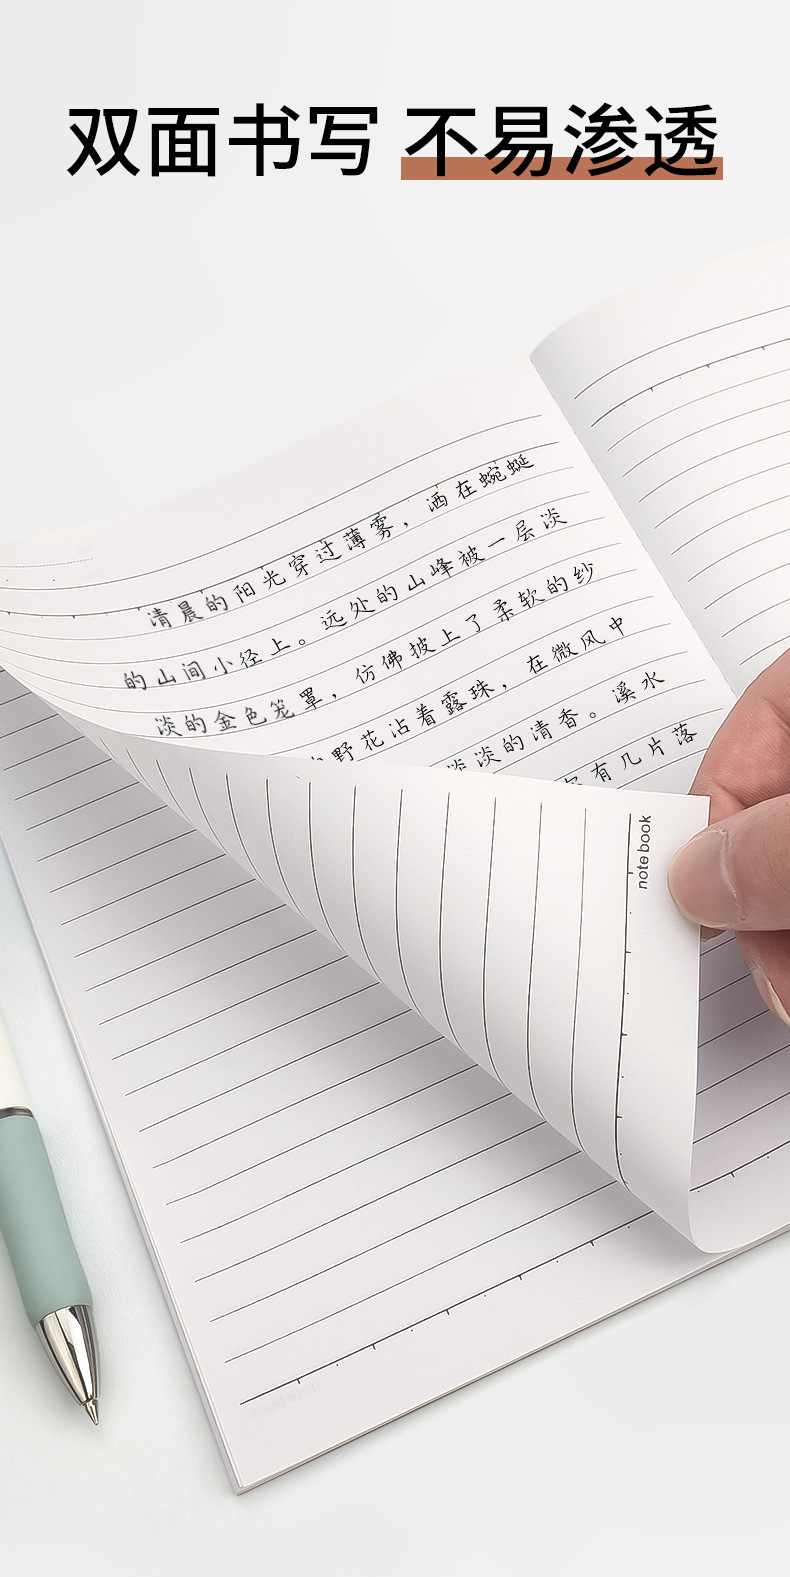 双面书写 不易渗透
清晨的阳光穿过薄雾，洒在蜿蜒
的山间小径上。远处的山峰被一层淡
淡的金色笼罩，仿佛披上了柔软的纱
野花沾着露珠，在微风中
淡淡的清香。溪水
有几片落
notebook